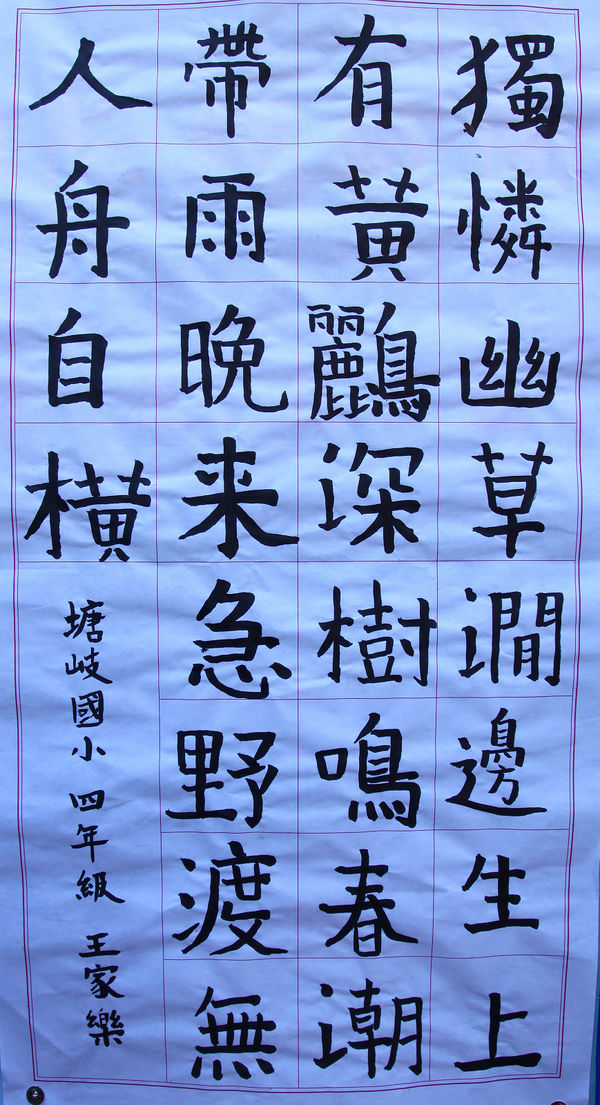 獨憐幽草澗邊生上
有黃鸝深樹鳴春潮
帶雨晚来急野渡無
人舟自橫
塘岐國小 四年級 王家樂